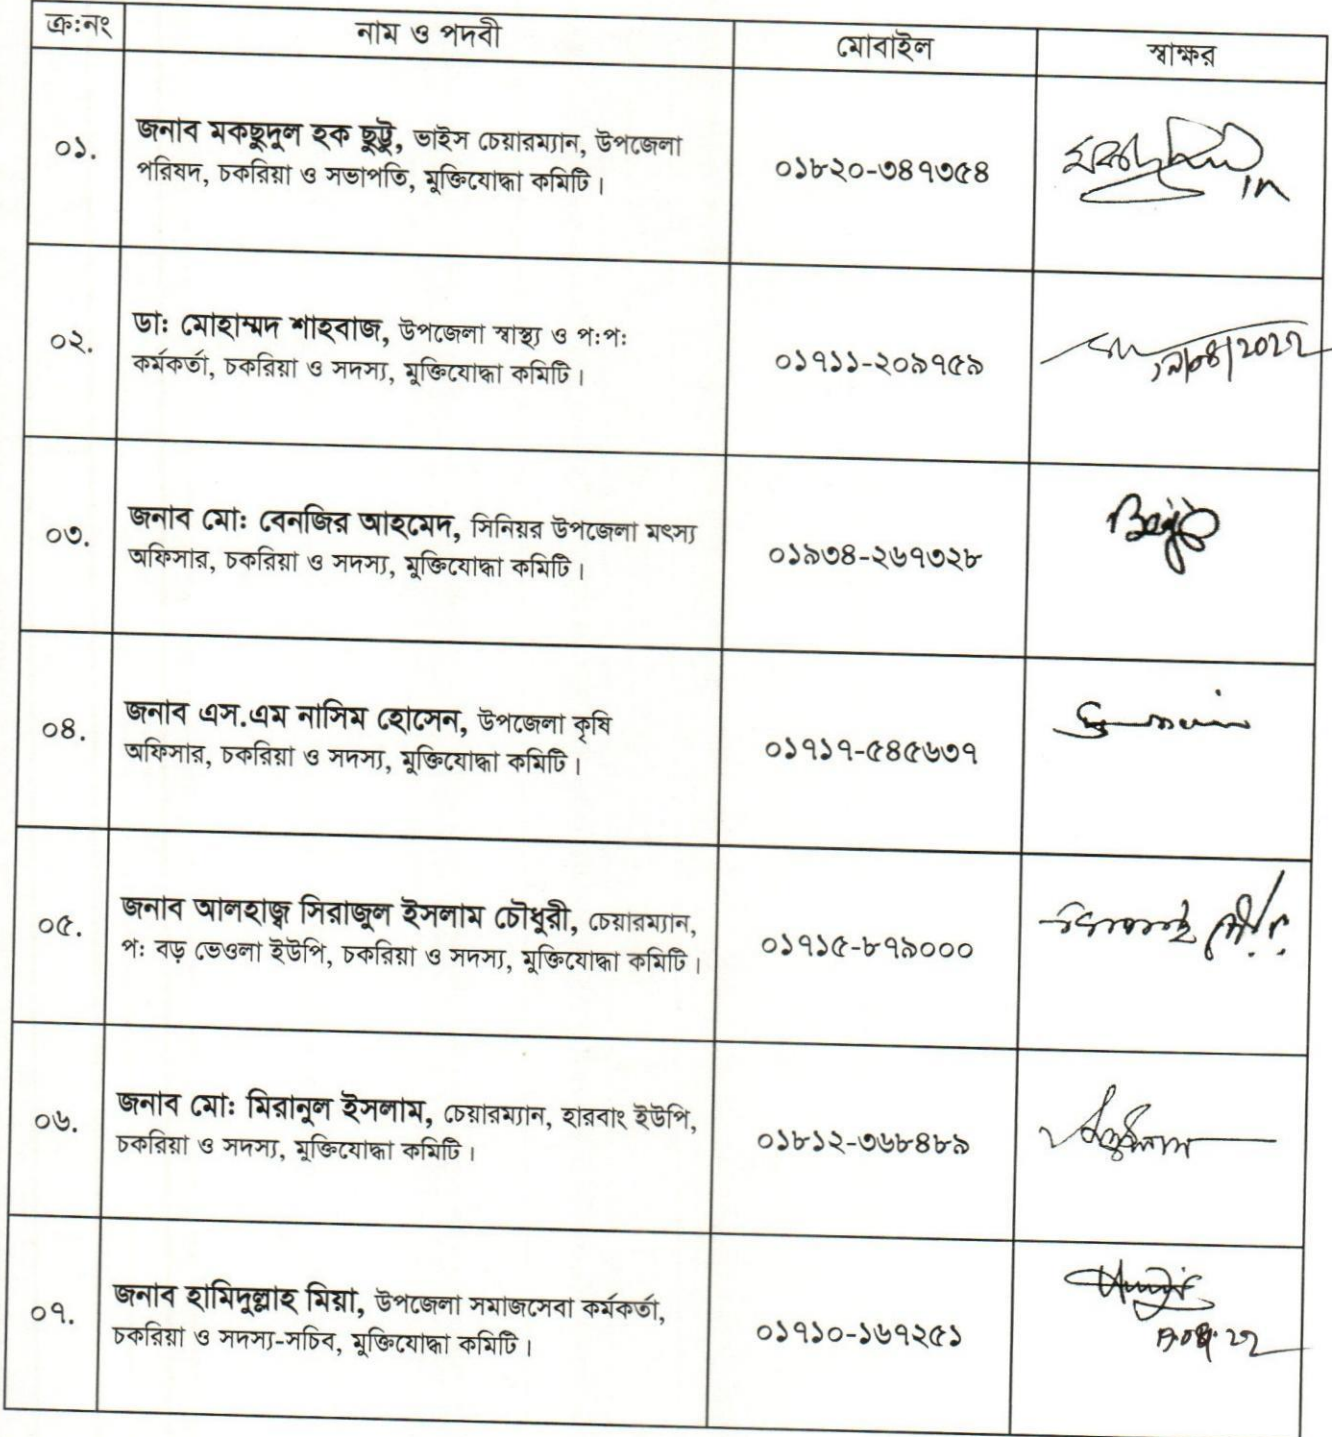 ক্র:নং নাম ও পদবী মোবাইল স্বাক্ষর
০১. জনাব মকছুদুল হক ছুট্টু, ভাইস চেয়ারম্যান, উপজেলা
পরিষদ, চকরিয়া ও সভাপতি, মুক্তিযোদ্ধা কমিটি।
০১৮২০-৩৪৭৩৫৪
০২. ডা: মোহাম্মদ শাহবাজ, উপজেলা স্বাস্থ্য ও প:প:
কর্মকর্তা, চকরিয়া ও সদস্য, মুক্তিযোদ্ধা কমিটি।
০১৭১১-২০৯৭৫৯
০৩. জনাব মো: বেনজির আহমেদ, সিনিয়র উপজেলা মৎস্য
অফিসার, চকরিয়া ও সদস্য, মুক্তিযোদ্ধা কমিটি।
০১৯৩৪-২৬৭৩২৮
০৪. জনাব এস.এম নাসিম হোসেন, উপজেলা কৃষি
অফিসার, চকরিয়া ও সদস্য, মুক্তিযোদ্ধা কমিটি।
০১৭১৭-৫৪৫৬৩৭
০৫. জনাব আলহাজ্ব সিরাজুল ইসলাম চৌধুরী, চেয়ারম্যান,
প: বড় ভেওলা ইউপি, চকরিয়া ও সদস্য, মুক্তিযোদ্ধা কমিটি।
০১৭১৫-৮৭৯০০০
০৬. জনাব মো: মিরানুল ইসলাম, চেয়ারম্যান, হারবাং ইউপি,
চকরিয়া ও সদস্য, মুক্তিযোদ্ধা কমিটি।
০১৮১২-৩৬৮৪৮৯
০৭. জনাব হামিদুল্লাহ মিয়া, উপজেলা সমাজসেবা কর্মকর্তা,
চকরিয়া ও সদস্য-সচিব, মুক্তিযোদ্ধা কমিটি।
০১৭১০-১৬৭২৫১